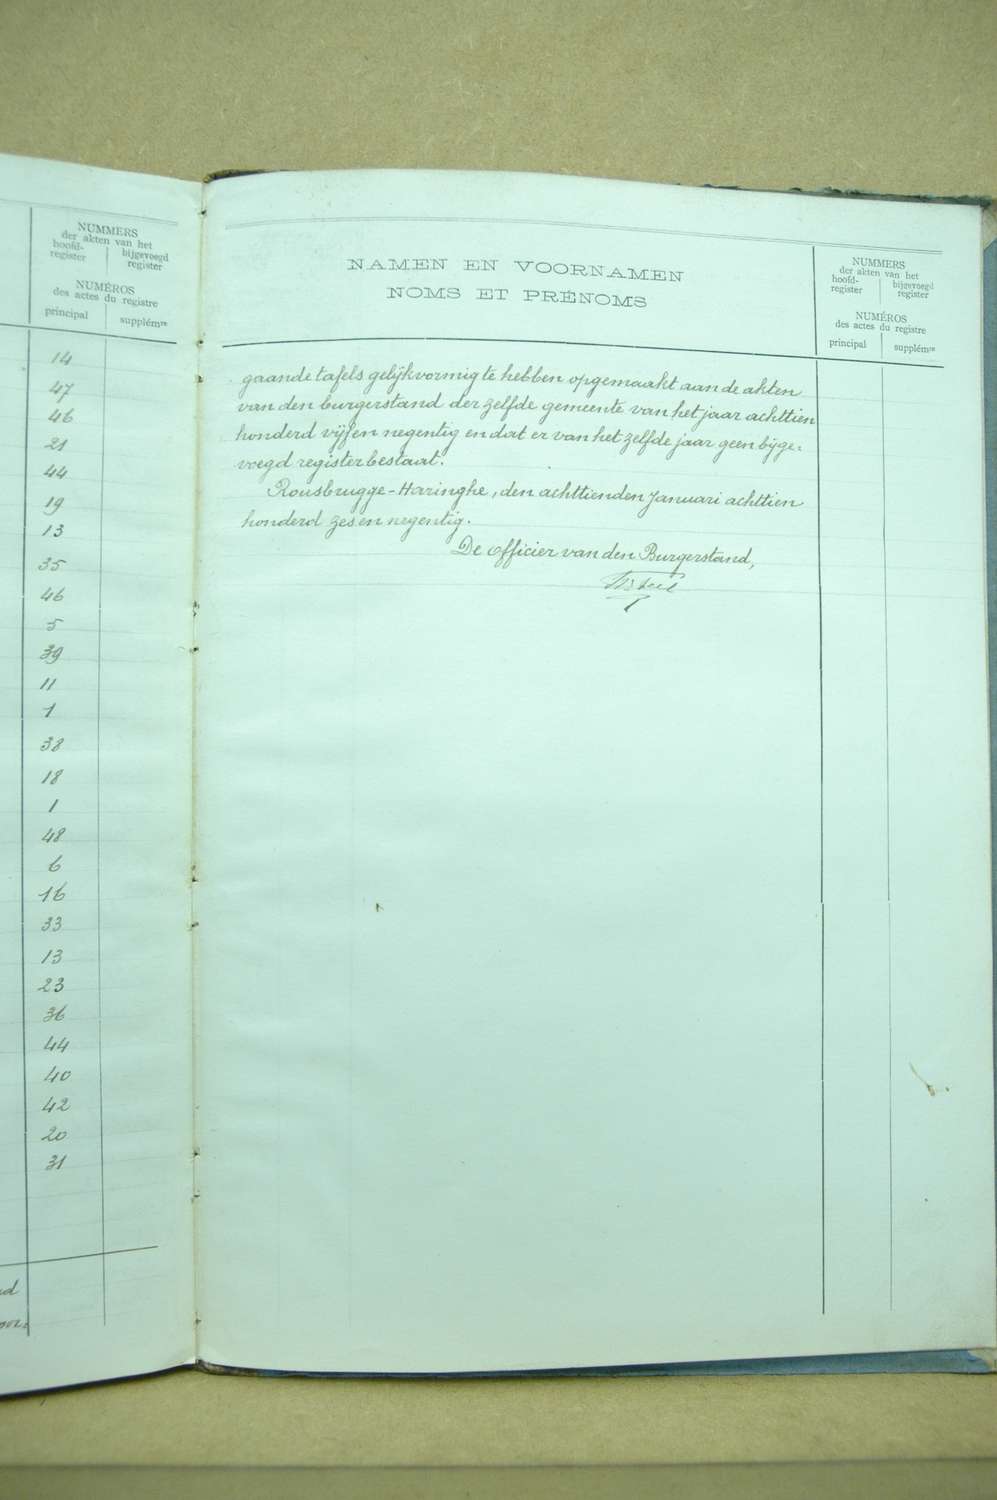 NUMMERS
der akten van het
hoofd-
register
bijgevoegd
register
NUMÉROS
des actes du registre
principal
supplémre
14
47
46
21
44
19
13
35
46
5
39
11
1
38
18
1
48
6
16
33
13
23
36
44
40
42
20
31
NAMEN EN VOORNAMEN
NOMS ET PRÉNOMS
NUMMERS
der akten van het
hoofd-
register
bijgevoegd
register
NUMÉROS
des actes du registre
principal
supplémre
gaande tafels gelijkvormig te hebben opgemaakt aan de akten
van den burgerstand der zelfde gemeente van het jaar achttien
honderd vijf en negentig en dat er van het zelfde jaar geen bijge:
voegd register bestaat.
Rousbrugge-Haringhe, den achttienden Januari achttien
honderd zes en negentig.
De officier van den Burgerstand,